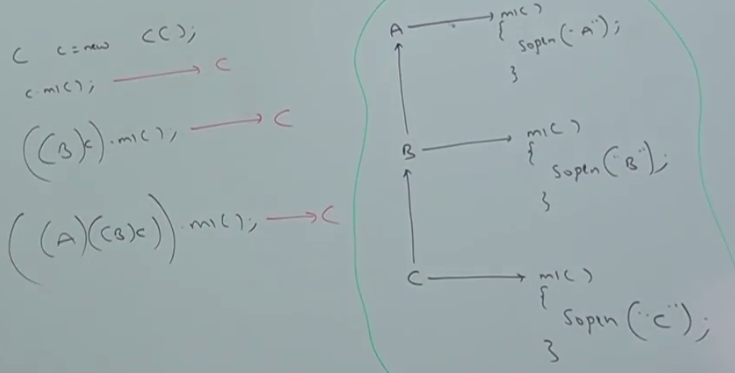 C c = new C();
c.m1(); → C
((B)c).m1(); → C
((A)((B)c)).m1(); → C
A → m1()
{
sopln("A");
}
B → m1()
{
sopln("B");
}
C → m1()
{
sopln("C");
}